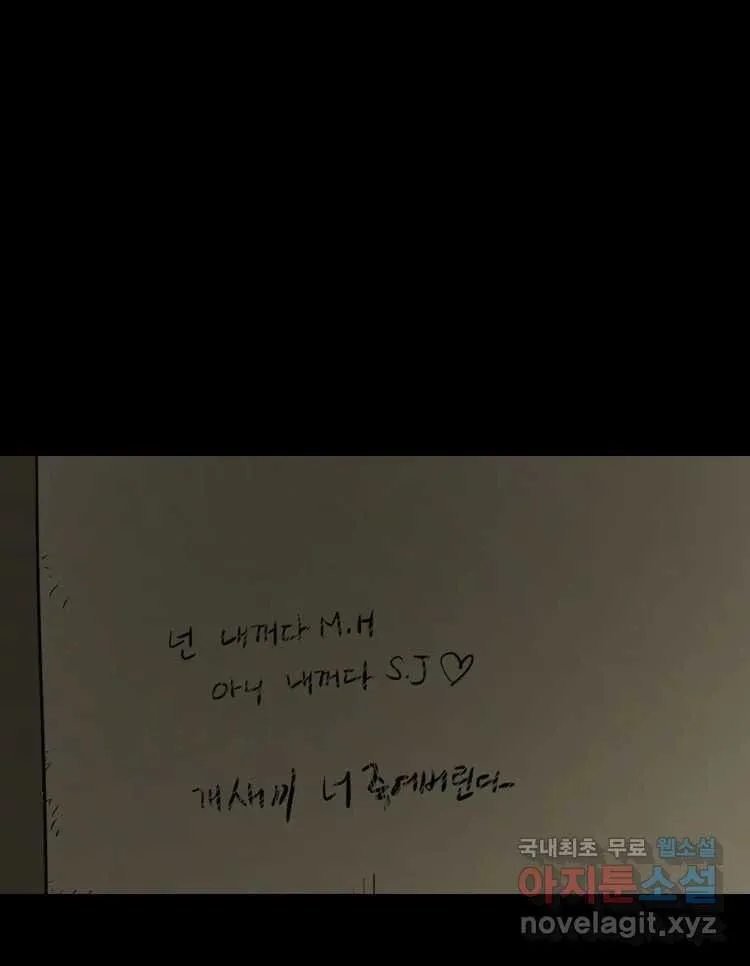 넌 내꺼다 M.H
아니 내꺼다 S.J♡
개새끼 너 죽여버린다
국내최초 무료 웹소설
아지툰소설
novelagit.xyz